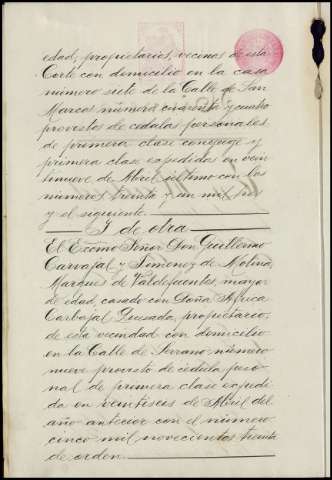 edad, propietarios, vecinos de esta
Corte con domicilio en la casa
número siete de la Calle de San
Marcos número cuarenta y cuatro
provistos de cédulas personales
de primera clase conyuge y
primera clase expedidas en vein
tinueve de Abril último con los
números treinta y un mil tres
y el siguiente.
Y de otra
El Excmo Señor Don Guillermo
Carvajal y Jimenez de Molina,
Marques de Valdefuentes, mayor
de edad, casado con Doña Africa
Carbajal Quesada, propietario,
de esta vecindad con domicilio
en la Calle de Serrano número
nueve provisto de cédula perso
nal de primera clase expedi
da en veintiseis de Abril del
año anterior con el número
cinco mil novecientos treinta
de orden.